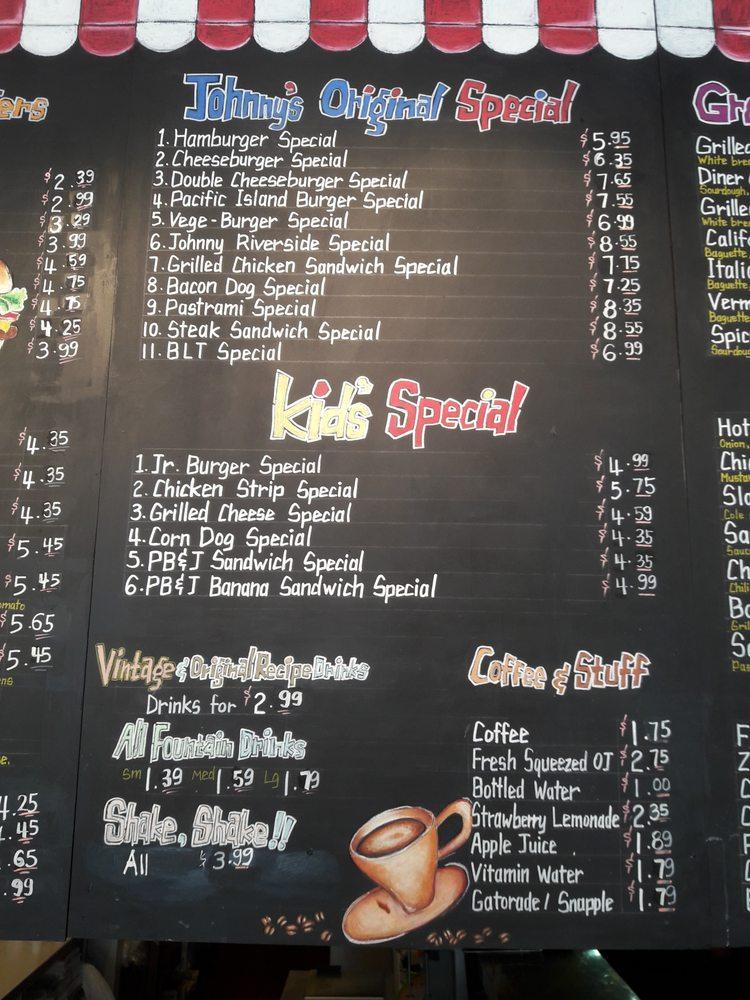 ers
$2.39
$2.99
$3.29
$3.99
$4.59
$4.75
$4.75
$4.25
$3.99
$4.35
$4.35
$4.35
$5.45
$5.45
omato
$5.65
$5.45
4.25
.45
.65
.99
Johnny's Original Special
1. Hamburger Special $5.95
2. Cheeseburger Special $6.35
3. Double Cheeseburger Special $7.65
4. Pacific Island Burger Special $7.55
5. Vege-Burger Special $6.99
6. Johnny Riverside Special $8.55
7. Grilled Chicken Sandwich Special $7.75
8. Bacon Dog Special $7.25
9. Pastrami Special $8.35
10. Steak Sandwich Special $8.55
11. BLT Special $6.99
Kid's Special
1. Jr. Burger Special $4.99
2. Chicken Strip Special $5.75
3. Grilled Cheese Special $4.59
4. Corn Dog Special $4.35
5. PB&J Sandwich Special $4.35
6. PB&J Banana Sandwich Special $4.99
Vintage & Original Recipe Drinks
Drinks for $2.99
All Fountain Drinks
Sm 1.39 Med 1.59 Lg 1.79
Shake, Shake!!
All $3.99
Coffee & Stuff
Coffee $1.75
Fresh Squeezed OJ $2.75
Bottled Water $1.00
Strawberry Lemonade $2.35
Apple Juice $1.89
Vitamin Water $1.79
Gatorade / Snapple $1.79
Gr
Grilled
White brea
Diner
Sourdough,
Grille
White brea
Califo
Baguette,
Italia
Baguette,
Verm
Baguette
Spic
Sourdoug
Hot
Onion,
Chi
Musta
Sl
Cole
Sa
Sauc
Ch
Chili
Ba
Gril
S
Pas